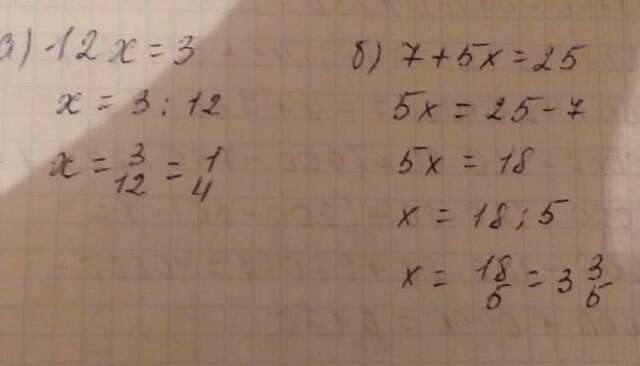 а) 12x = 3
x = 3 : 12
x = 3/12 = 1/4
б) 7 + 5x = 25
5x = 25 - 7
5x = 18
x = 18 : 5
x = 18/5 = 3 3/5